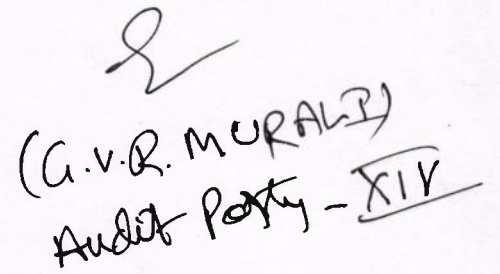 (G.V.R. MURALI)
Audit Party - XIV